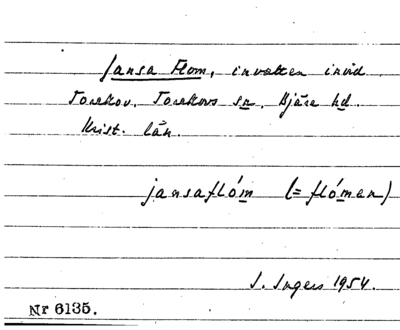 Jansa Flom, invatten invid
Torekov. Torekovs sn. Bjäre hd.
Krist. län.
jansaflóm (= flómen)
I. Ingers 1954.
Nr 6135.